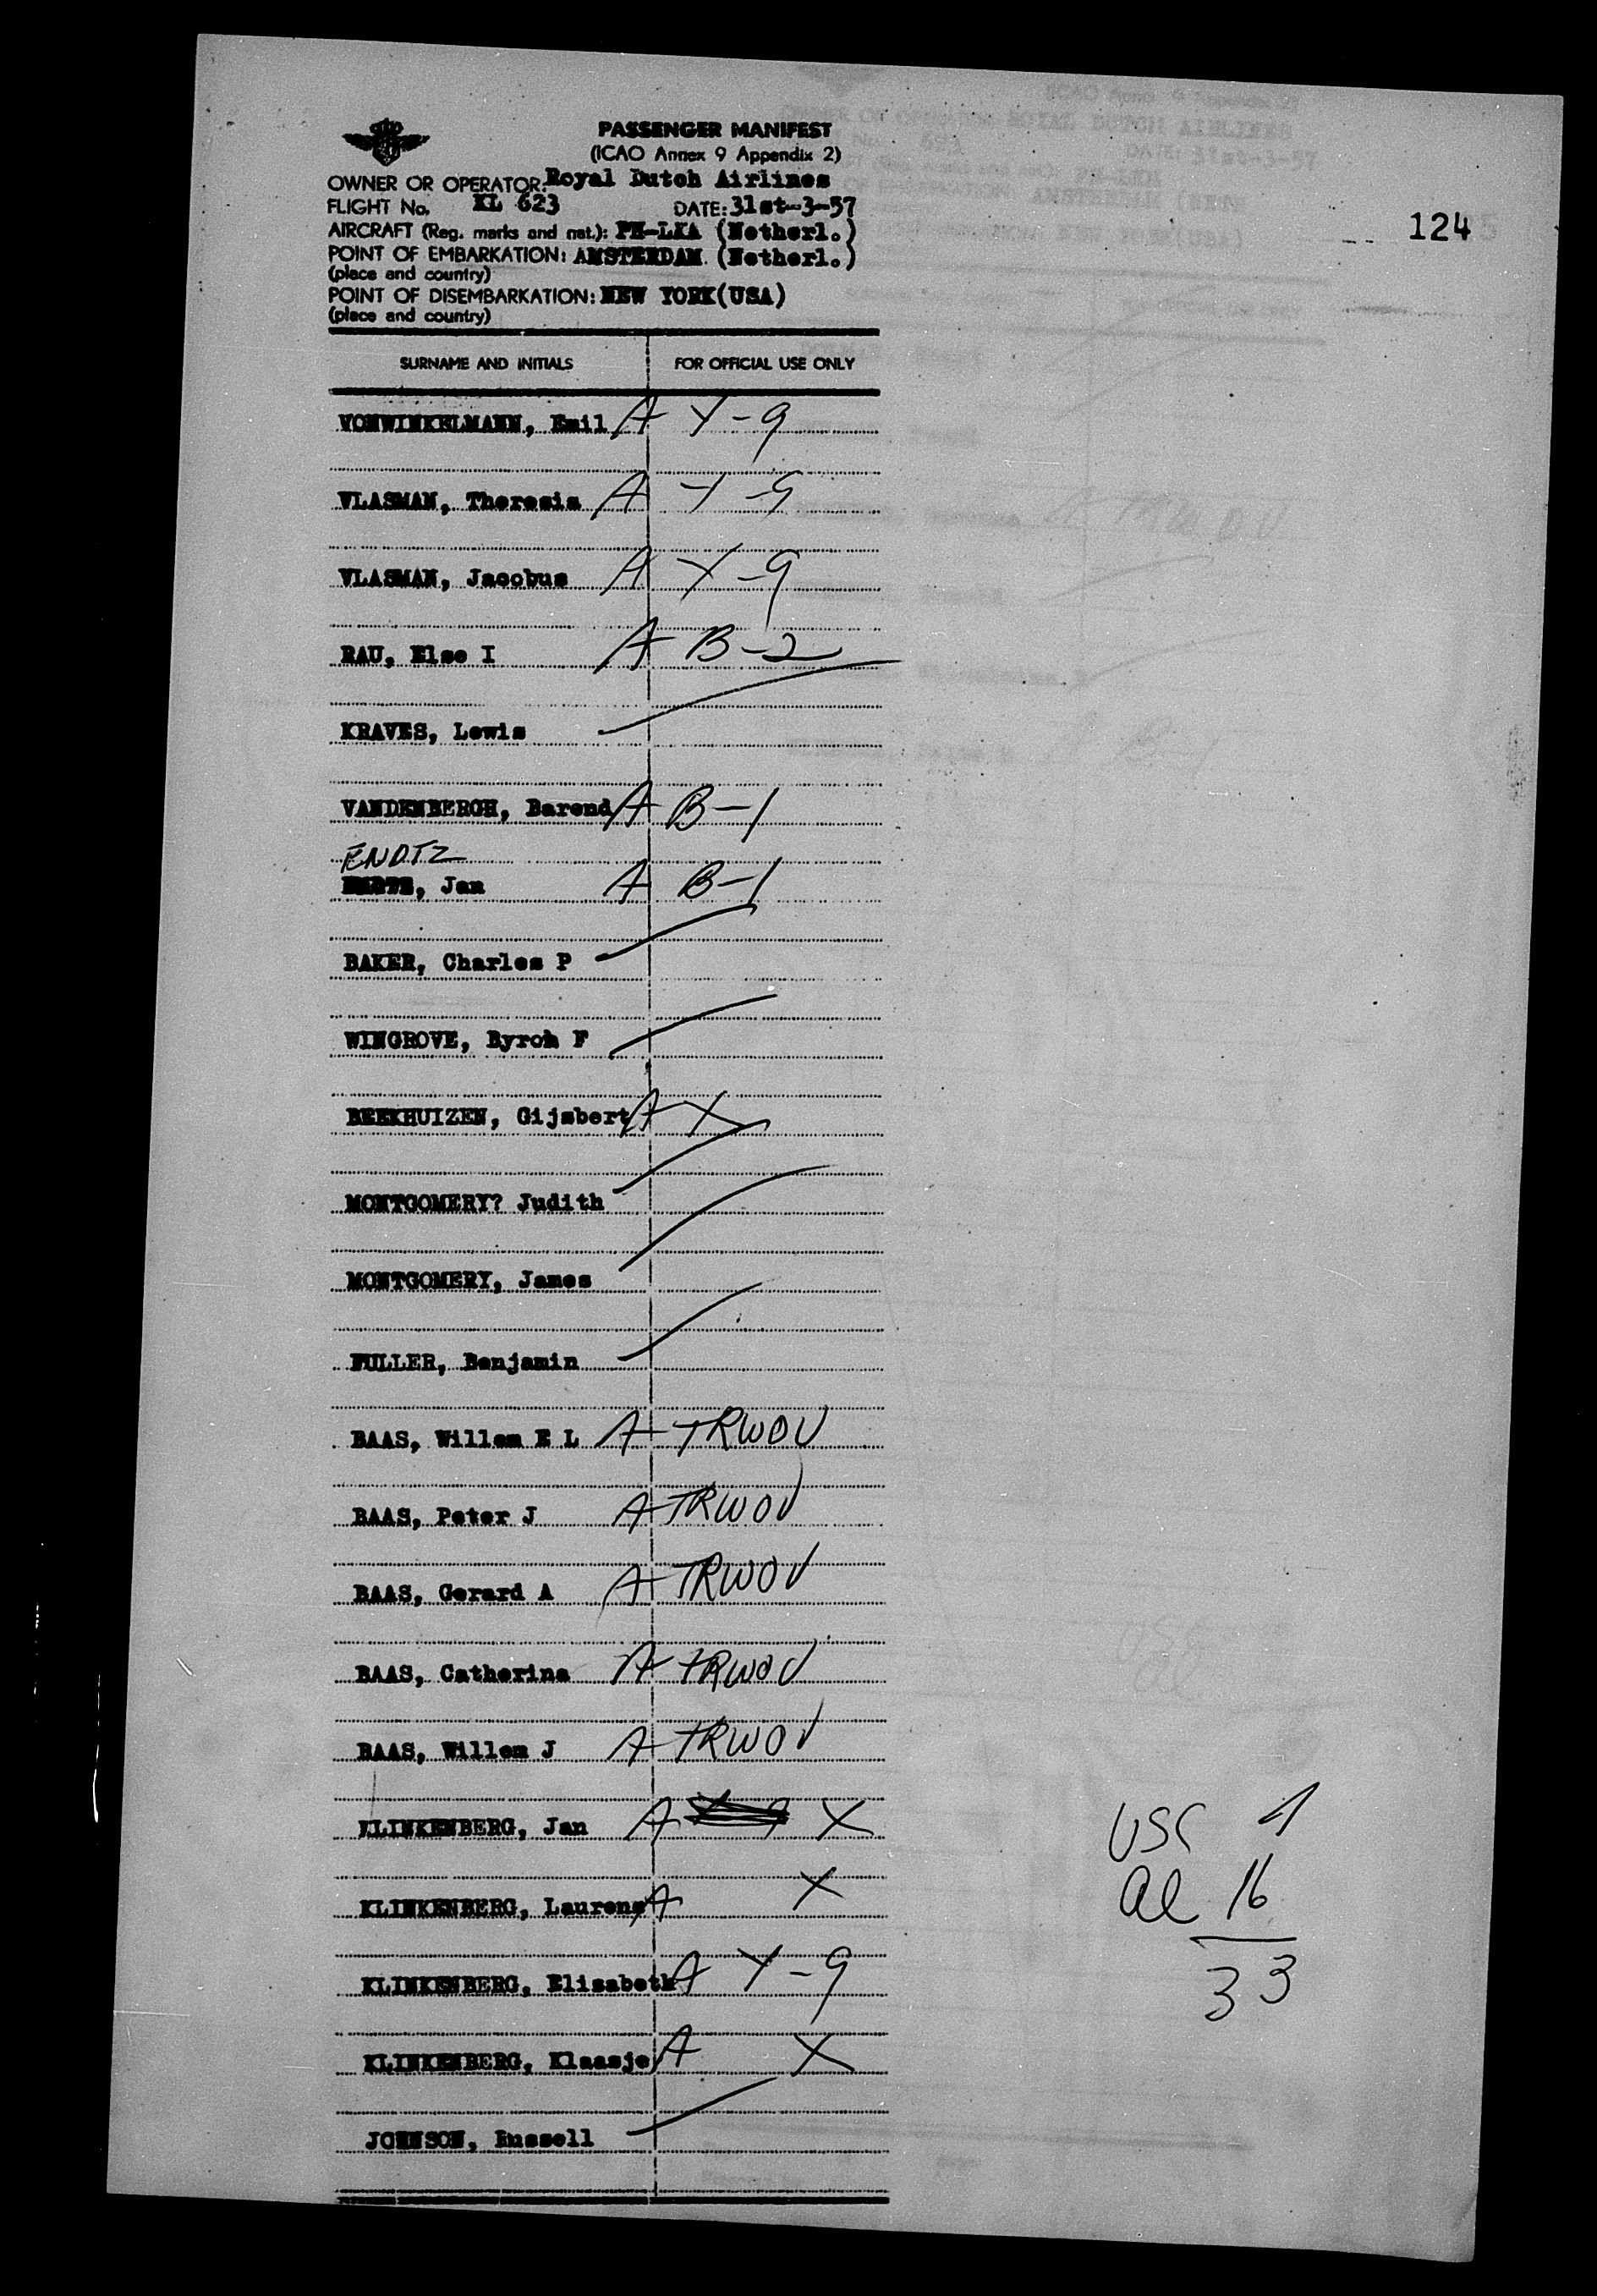 PASSENGER MANIFEST
(ICAO Annex 9 Appendix 2)
OWNER OR OPERATOR: Royal Dutch Airlines
FLIGHT No. KL 623 DATE: 31st-3-57
AIRCRAFT (Reg. marks and nat.): PH-LKA (Netherl.)
POINT OF EMBARKATION: AMSTERDAM (Netherl.)
(place and country)
POINT OF DISEMBARKATION: NEW YORK(USA)
(place and country)
124
SURNAME AND INITIALS FOR OFFICIAL USE ONLY
VONWINKELMANN, Emil A Y-9
VLASMAN, Theresia A Y-9
VLASMAN, Jacobus A Y-9
RAU, Else I A B-2
KRAVES, Lewis
VANDENBERGH, Barend A B-1
ENDTZ
Jan A B-1
BAKER, Charles P
WINGROVE, Byron F
BEEKHUIZEN, Gijsbert A X
MONTGOMERY? Judith
MONTGOMERY, James
FULLER, Benjamin
BAAS, Willem E L A TRWOV
BAAS, Peter J A TRWOV
BAAS, Gerard A A TRWOV
BAAS, Catherina A TRWOV
BAAS, Willem J A TRWOV
KLINKENBERG, Jan A X
KLINKENBERG, Laurens A X
KLINKENBERG, Elisabeth A Y-9
KLINKENBERG, Klaasje A X
JOHNSON, Russell
USC
al 16
33